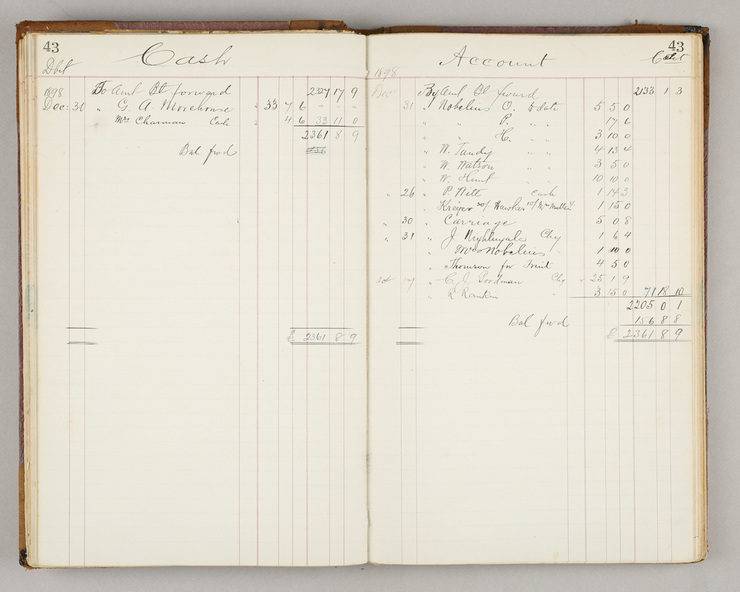 43
Cash
Debt
1898
To Amt Bt forward 17 9
Dec 30 " G A Morehouse " 33 7 6 - - -
Mrs Charman Cash " 4 6 33 11 0
2361 8 9
Bal fwd
£ 2361 8 9
43
Account
1898
Dec By Amt Bt forward 2133 1 3
31 " Nobelius O. 5 5 0
" " P. " " 17 6
" " H. " " 3 10 0
" W. Tandy " " 4 13 4
" W. Watson " " 3 5 0
" W. Hunt " " 10 10 0
" 26 " P Witt Cash 1 14 3
1 15 0
" 30 " Carriage 5 0 8
" 31 " J Nightingale Chq 1 6 4
" Mrs Nobelius " 1 10 0
Thomson for Fruit 4 5 0
" C. J. Goodman Chq 25 1 9
" R Rankin " 3 5 0 71 18 10
2205 0 1
Bal fwd 156 8 8
£ 2361 8 9